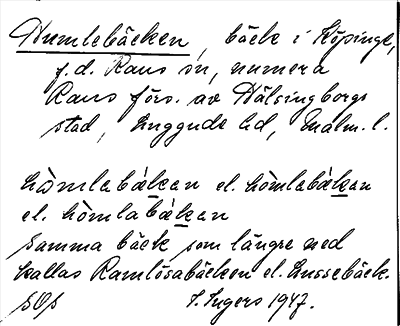 Humlebäcken, bäck i Köpinge,
f.d. Raus sn, numera
Raus förs. av Hälsingborgs
stad, Luggude hd, Malm. l.
hòmlabä̀kan el. hòmlabäkan
el. hòmlabäkan
samma bäck som längre ned
kallas Ramlösabäcken el. Lussebäck.
I. Ingers 1947.